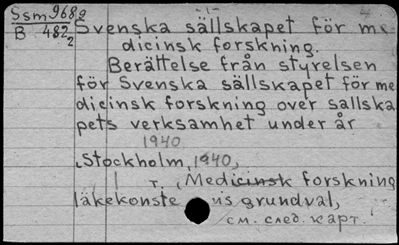 Ssm 968g
B 482₂
-1-
Svenska sällskapet för me
dicinsk forskning.
Berättelse från styrelsen
för Svenska sällskapet för me
dicinsk forskning över sällska
pets verksamhet under år
1940
Stockholm, 1940,
1 т. (Medicinsk forskning
läkekonste ns grundval,
см. след. карт.